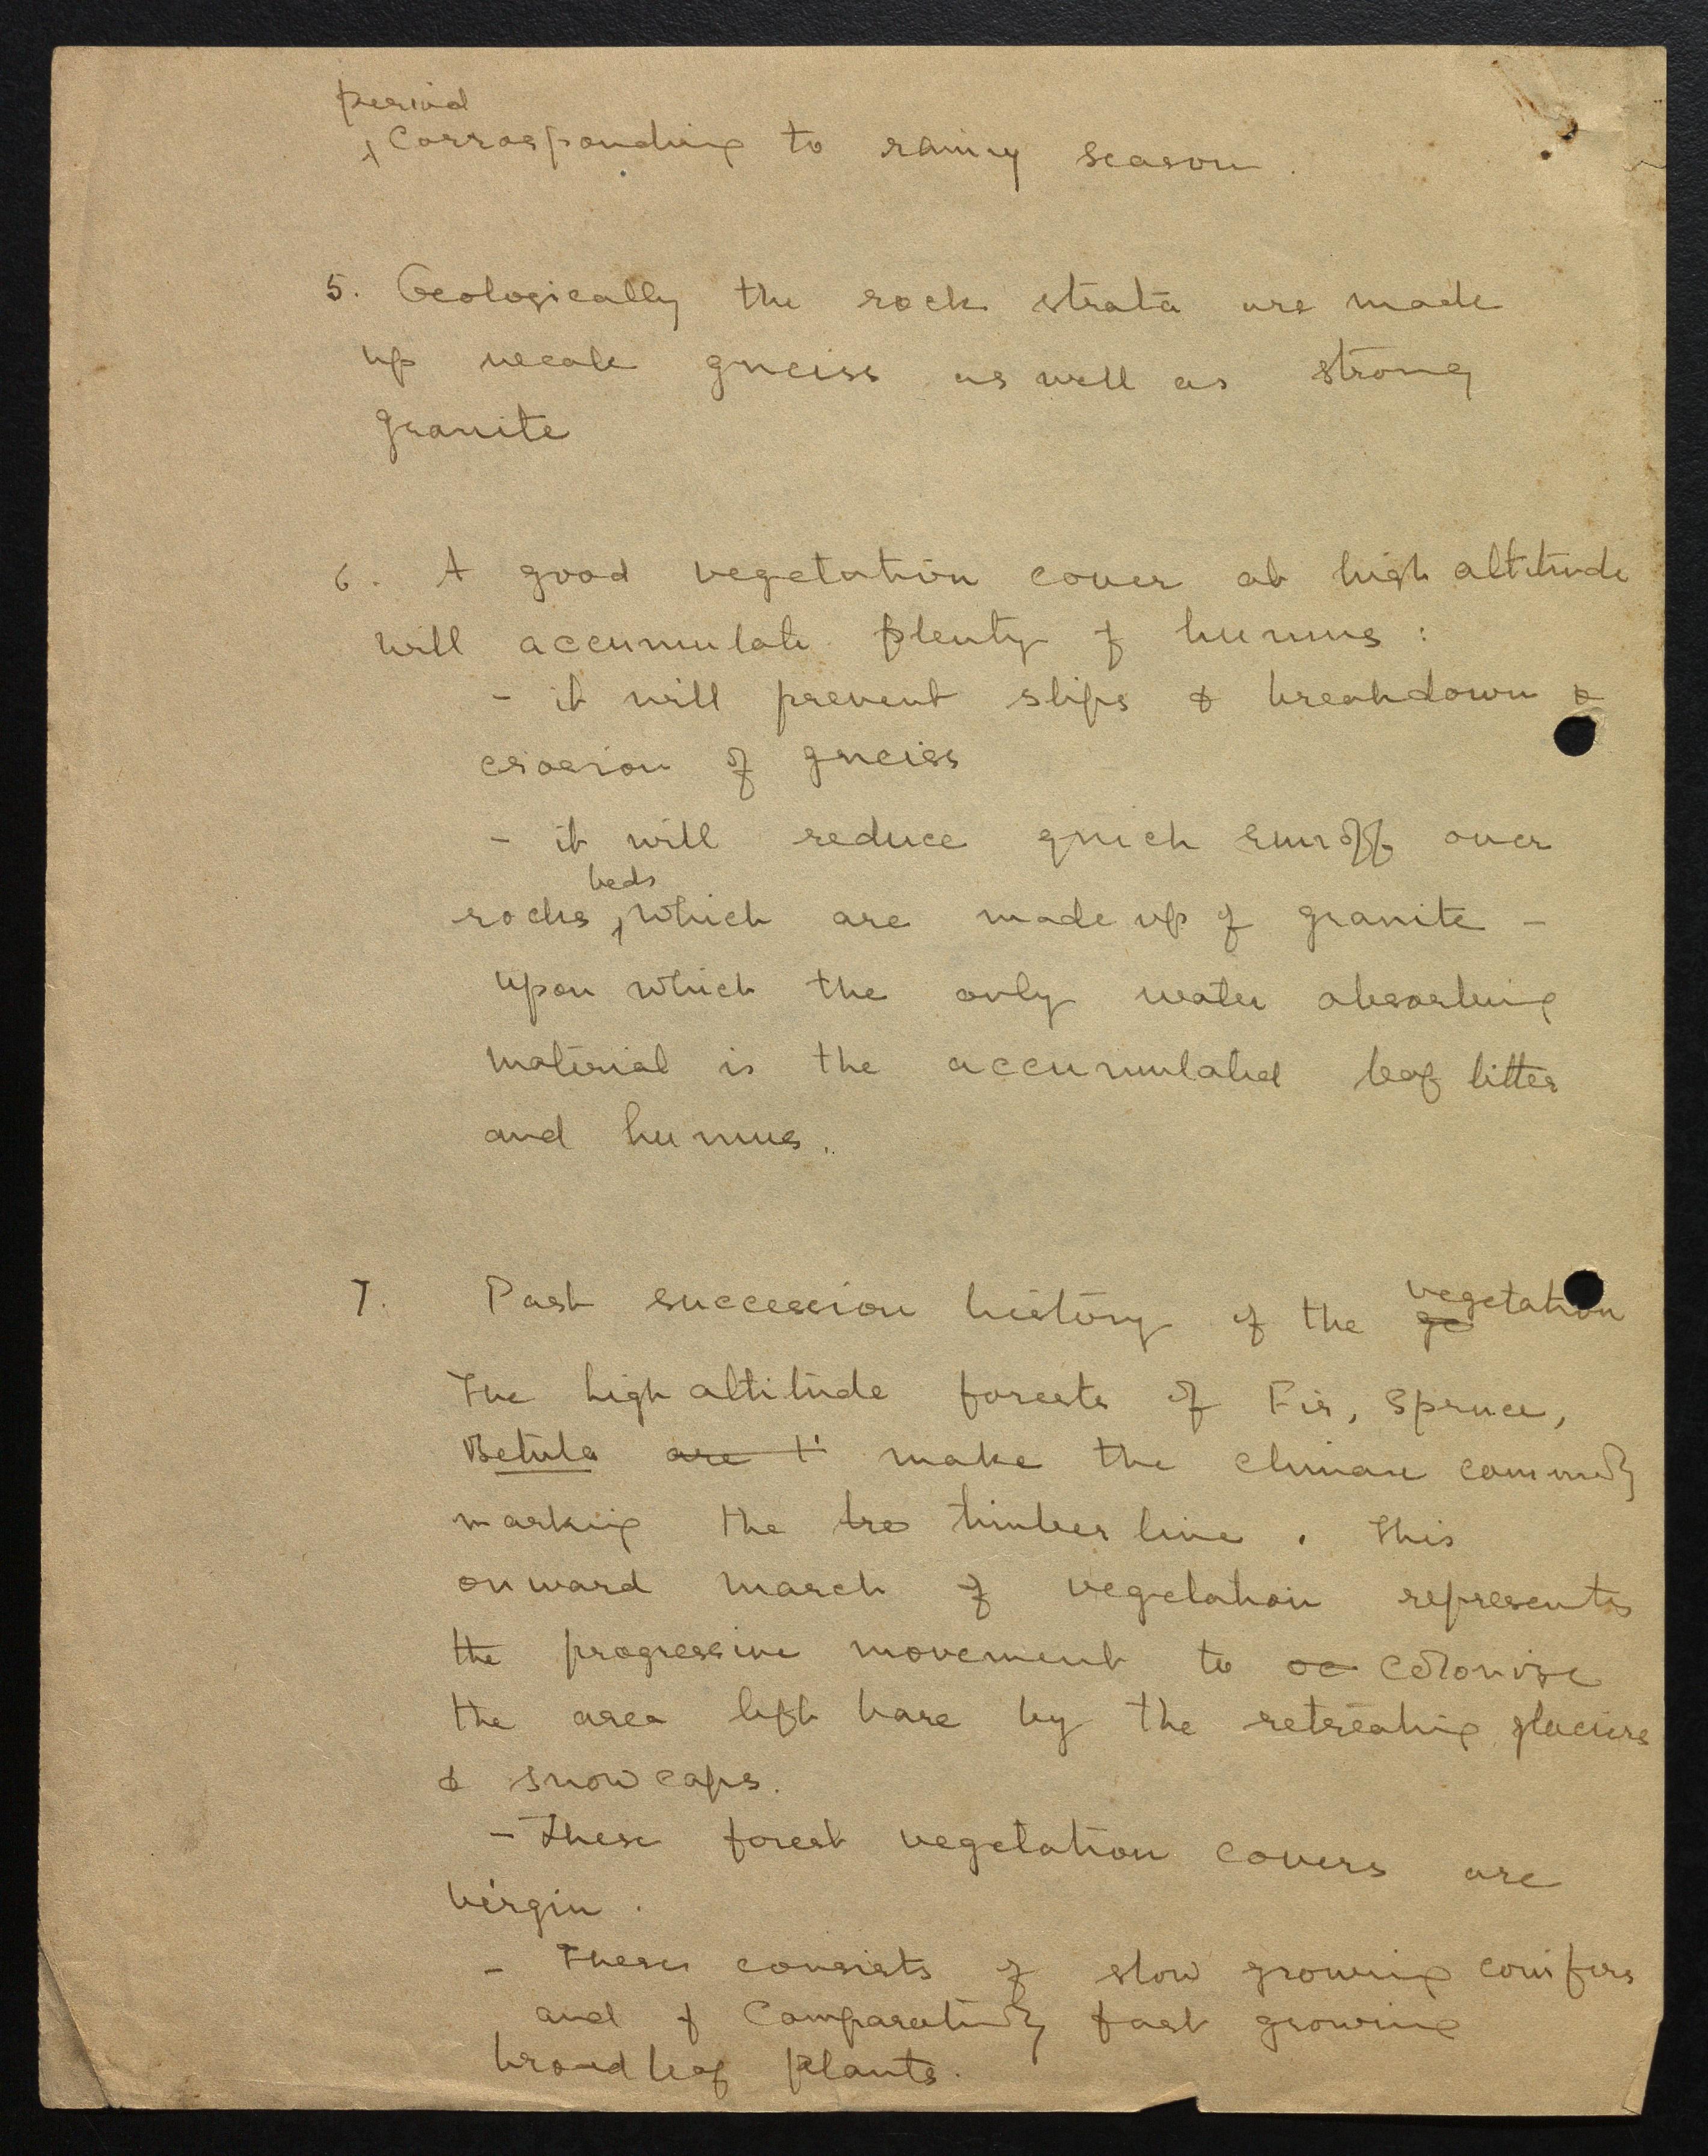 period
Corrosponding to rainy season.
5. Geologically the rock strata are made
up weak gneiss as well as strong
granite
6. A good vegetation cover at high altitude
will accumulate plenty of humus :
- it will prevent slips & breakdown &
erosion of gneiss
- it will reduce quick runoff over
beds
rocks, which are made up of granite -
upon which the only water absorbing
material is the accumulated leaf litter
and humus.
7. Past succession history of the ge vegetation
The high altitude forests of Fir, Spruce,
Betula are t make the climax
marking the tre timber line. This
onward march of vegetation represents
the progressive movement to oc colonize
the area left bare by the retreating glaciers
& snow caps.
- These forest vegetation covers are
virgin.
- These consists of slow growing conifers
and of Comparatively fast growing
broad leaf plants.